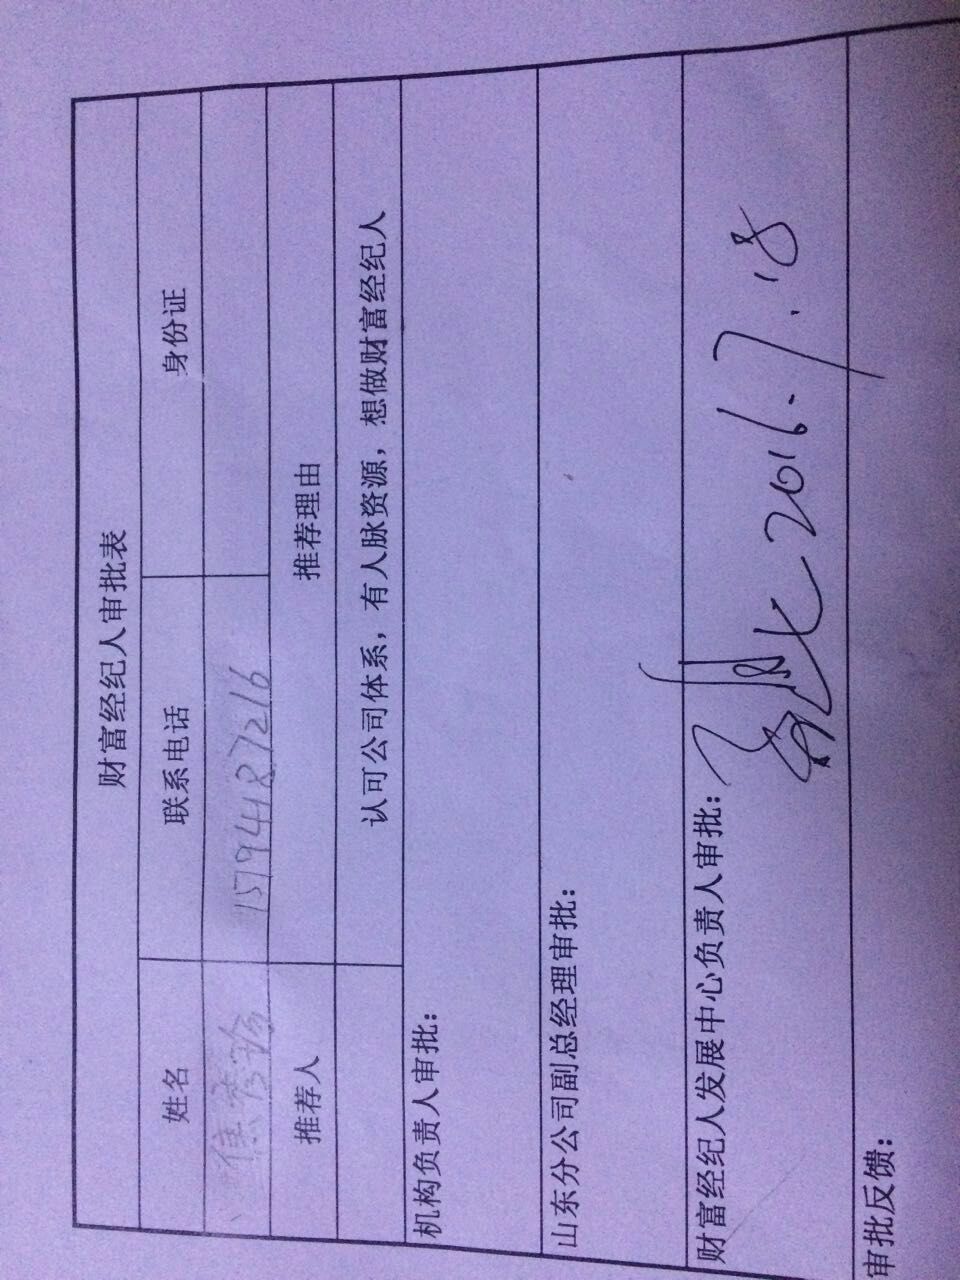 财富经纪人审批表
姓名 联系电话 身份证
焦秀珍 15794487216
推荐人 推荐理由
认可公司体系，有人脉资源，想做财富经纪人
机构负责人审批：
山东分公司副总经理审批：
财富经纪人发展中心负责人审批： 2016.7.18
审批反馈：